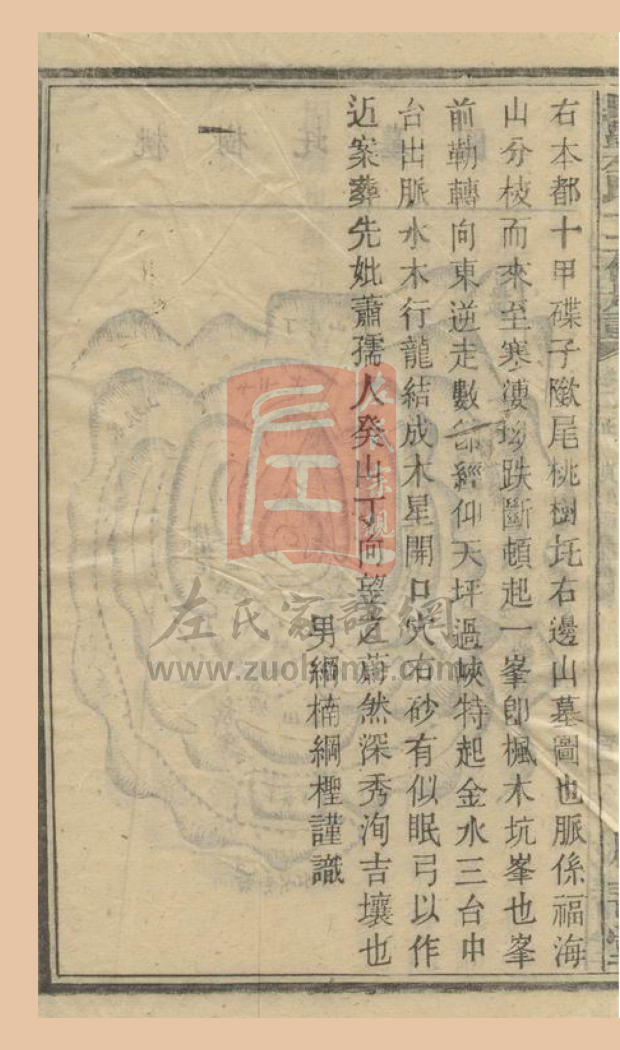 右本都十甲磜子隞尾桃樹圫右邊山墓圖也脈係福海
山分枝而來至寒凄坳跌斷頓起一峯卽楓木坑峯也峯
前勒轉向東逆走數節經仰天坪過峽特起金水三台中
台出脈水木行龍結成木星開口穴右砂有似眠弓以作
近案葬先妣蕭孺人癸山丁向望之蔚然深秀洵吉壤也
男綱楠綱檉謹識
左氏家譜網